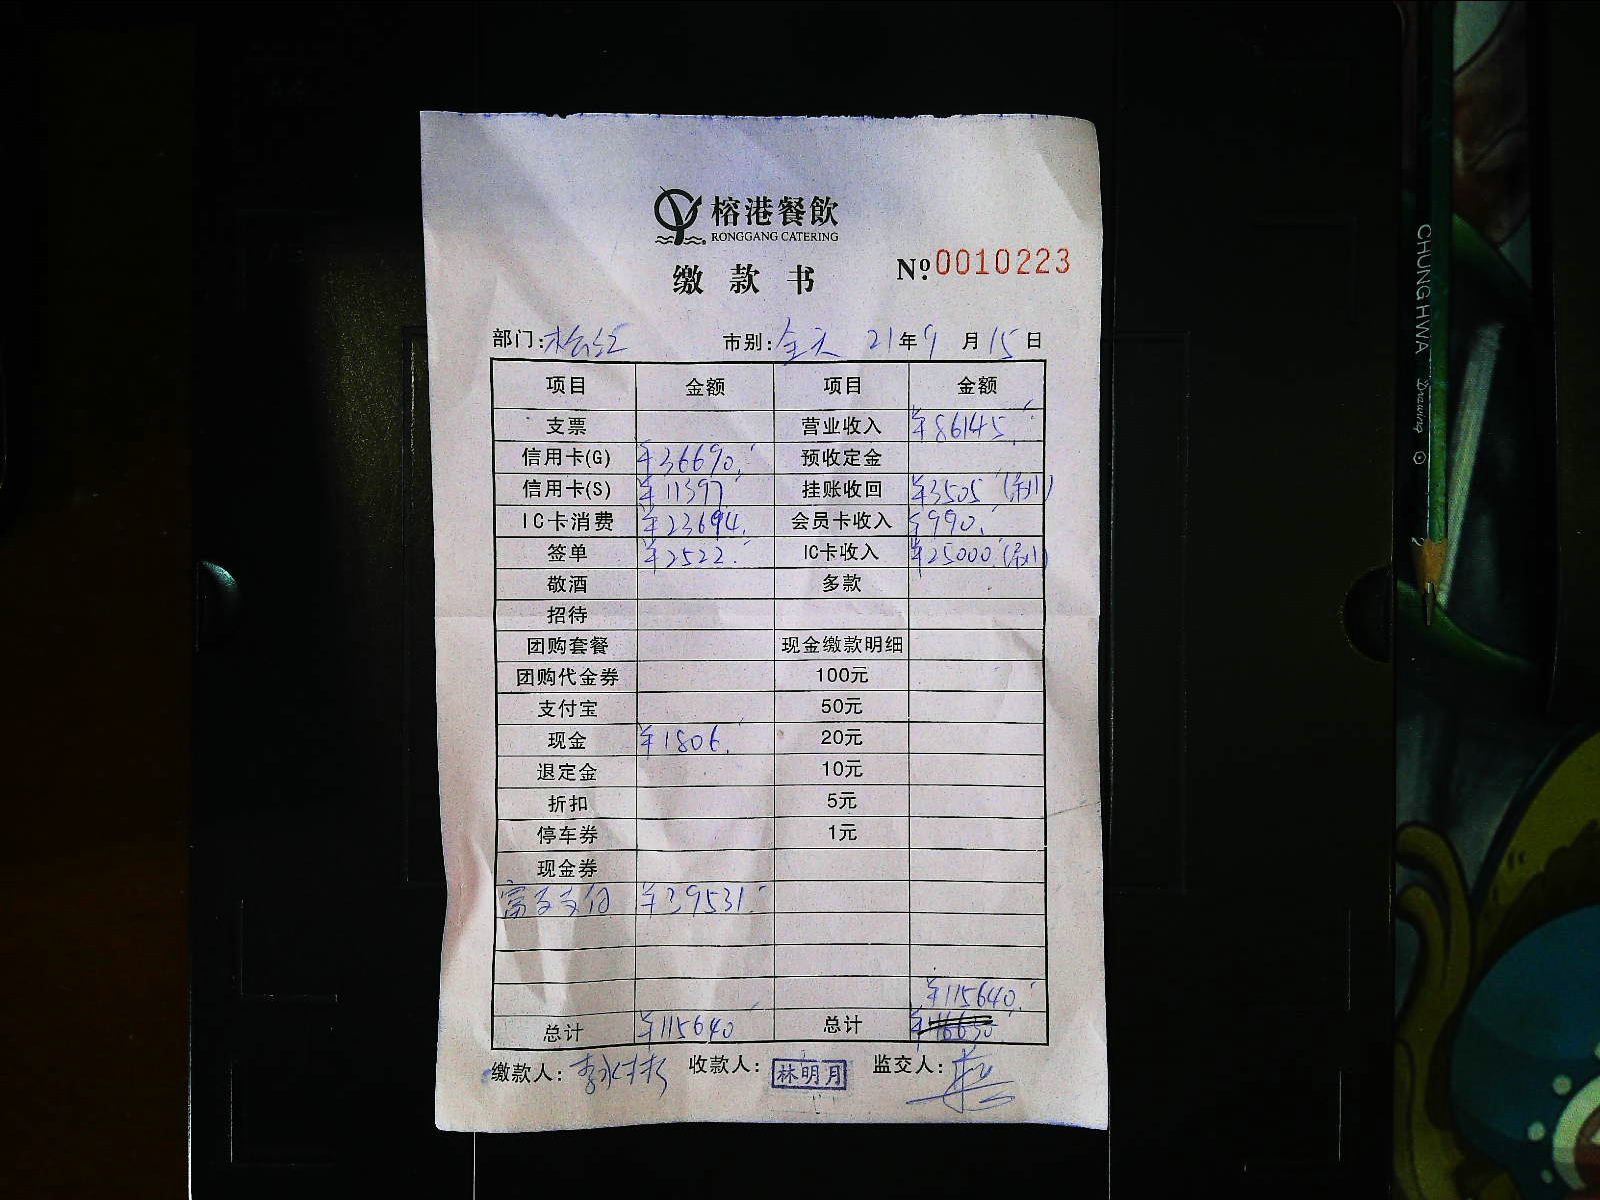 榕港餐飲
RONGGANG CATERING
缴款书 №0010223
部门: 市别:全天 21年9月15日
项目 金额 项目 金额
支票 营业收入 ¥86145.
信用卡(G) ¥36690. 预收定金
信用卡(S) ¥11397 挂账收回 ¥3505
IC卡消费 ¥23694. 会员卡收入 ¥990.
签单 ¥2522. IC卡收入 ¥25000
敬酒 多款
招待
团购套餐 现金缴款明细
团购代金券 100元
支付宝 50元
现金 ¥1806. 20元
退定金 10元
折扣 5元
停车券 1元
现金券
富友支付 ¥39531.
¥115640.
总计 ¥115640 总计
缴款人: 收款人:林明月 监交人:
CHUNGHWA Drawing 2